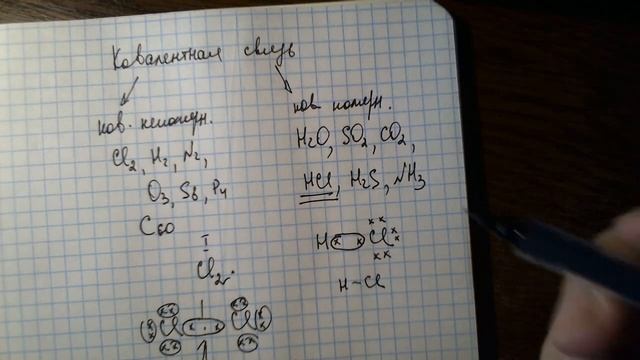 Ковалентная связь
ков. неполярн.
Cl2, H2, N2,
O3, S8, P4
C60
I
Cl2.
Cl Cl
ков. полярн.
H2O, SO2, CO2,
HCl, H2S, NH3
H Cl
H-Cl